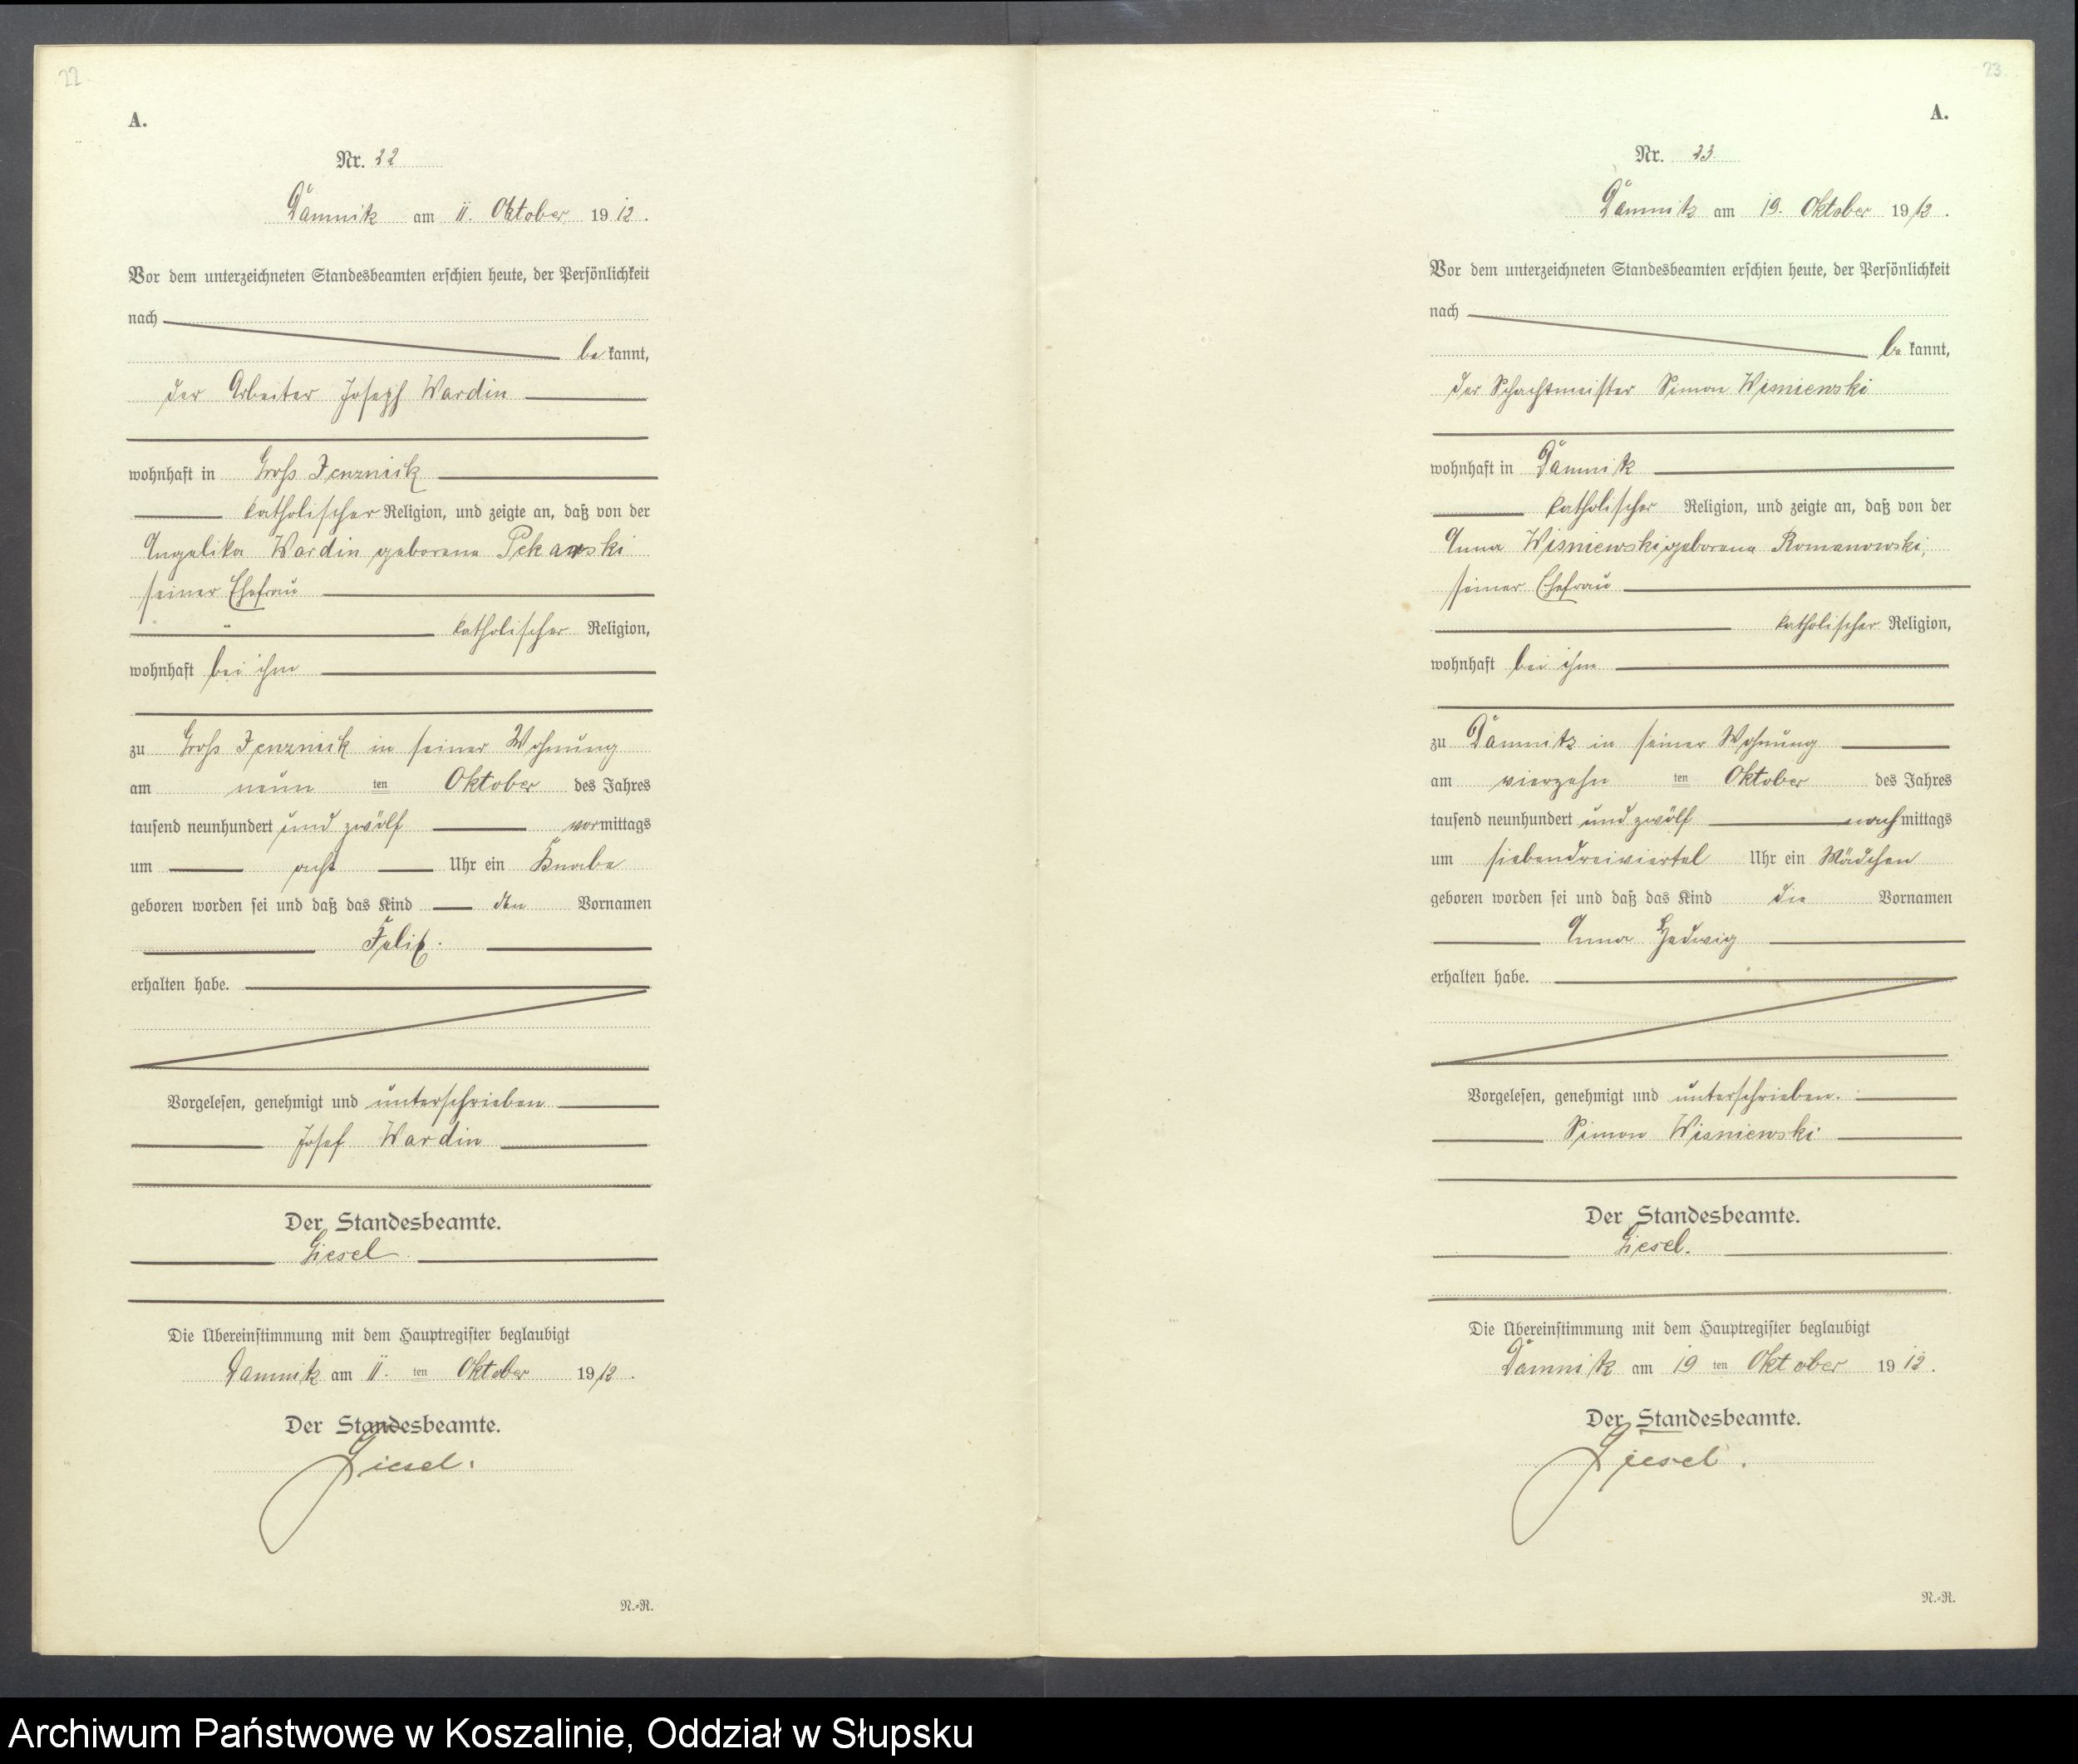 22
A.
Nr. 22
Damnik am 11. Oktober 1912.
Vor dem unterzeichneten Standesbeamten erschien heute, der Persönlichkeit
nach
be kannt,
der Arbeiter Joseph Wardin
wohnhaft in Groß Jenznick
katholischer Religion, und zeigte an, daß von der
Angelika Wardin geborene
seiner Ehefrau
katholischer Religion,
wohnhaft bei ihm
zu Groß Jenznick in seiner Wohnung
am neun ten Oktober des Jahres
tausend neunhundert und zwölf vormittags
um acht Uhr ein Knabe
geboren worden sei und daß das Kind den Vornamen
Felix.
erhalten habe.
Vorgelesen, genehmigt und unterschrieben
Josef Wardin
Der Standesbeamte.
Giesel
Die Übereinstimmung mit dem Hauptregister beglaubigt
Damnik am 11. ten Oktober 1912.
Der Standesbeamte.
Giesel.
N.-R.
23
A.
Nr. 23
Damnik am 19. Oktober 1912.
Vor dem unterzeichneten Standesbeamten erschien heute, der Persönlichkeit
nach
be kannt,
der Schachtmeister Simon Wisniewski
wohnhaft in Damnik
katholischer Religion, und zeigte an, daß von der
Anna Wisniewski geborene Romanowski,
seiner Ehefrau
katholischer Religion,
wohnhaft bei ihm
zu Damnik in seiner Wohnung
am vierzehn ten Oktober des Jahres
tausend neunhundert und zwölf nachmittags
um siebendreiviertel Uhr ein Mädchen
geboren worden sei und daß das Kind die Vornamen
Anna Hedwig
erhalten habe.
Vorgelesen, genehmigt und unterschrieben.
Simon Wisniewski
Der Standesbeamte.
Giesel.
Die Übereinstimmung mit dem Hauptregister beglaubigt
Damnik am 19 ten Oktober 1912.
Der Standesbeamte.
Giesel.
N.-R.
Archiwum Państwowe w Koszalinie, Oddział w Słupsku